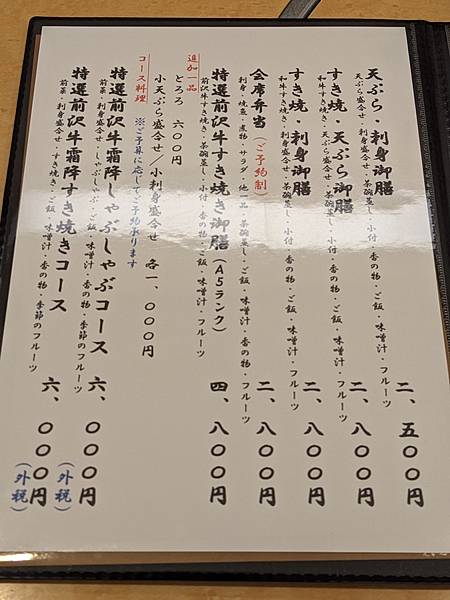 天ぷら・刺身御膳　二、五〇〇円
天ぷら・刺身盛合せ・茶碗蒸し・小付・香の物・ご飯・味噌汁・フルーツ
すき焼・天ぷら御膳　二、八〇〇円
和牛すき焼き・天ぷら盛合せ・茶碗蒸し・小付・香の物・ご飯・味噌汁・フルーツ
すき焼・刺身御膳　二、八〇〇円
和牛すき焼き・刺身盛合せ・茶碗蒸し・小付・香の物・ご飯・味噌汁・フルーツ
会席弁当（ご予約制）　二、八〇〇円
刺身・焼魚・煮物・サラダ・他一品・茶碗蒸し・ご飯・味噌汁・香の物・フルーツ
特選前沢牛すき焼き御膳（A5ランク）　四、八〇〇円
前沢牛すき焼き・茶碗蒸し・小付・香の物・ご飯・味噌汁・フルーツ
追加一品
とろろ　六〇〇円
小天ぷら盛合せ／小刺身盛合せ　各一、〇〇〇円
コース料理　※ご予算に応じてご予約承ります
特選前沢牛霜降しゃぶしゃぶコース　六、〇〇〇円（外税）
前菜・刺身盛合せ・しゃぶしゃぶ・ご飯・味噌汁・香の物・季節のフルーツ
特選前沢牛霜降すき焼きコース　六、〇〇〇円（外税）
前菜・刺身盛合せ・すき焼き・ご飯・味噌汁・香の物・季節のフルーツ